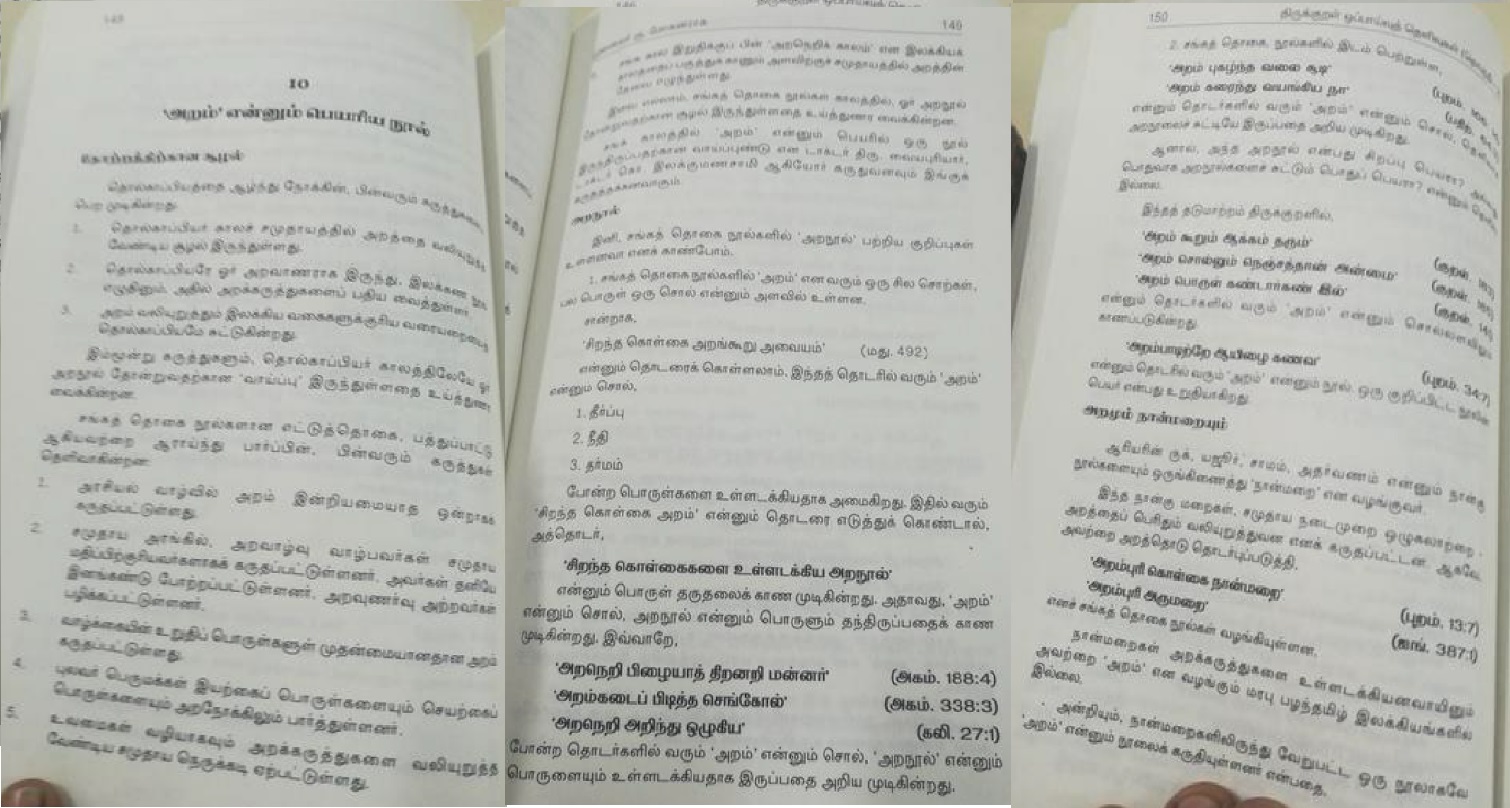 148
10
'அறம்' என்னும் பெயரிய நூல்
தோற்றத்திற்கான சூழல்
தொல்காப்பியத்தை ஆழ்ந்து நோக்கின், பின்வரும் கருத்துகளை
பெற முடிகின்றது.
1. தொல்காப்பியர் காலச் சமுதாயத்தில் அறத்தை வலியுறுத்த
வேண்டிய சூழல் இருந்துள்ளது.
2. தொல்காப்பியரே ஓர் அறவாணராக இருந்து, இலக்கண நூல்
எழுதினும், அதில் அறக்கருத்துகளைப் பதிய வைத்துள்ளார்.
3. அறம் வலியுறுத்தும் இலக்கிய வகைகளுக்குரிய வரையறையைத்
தொல்காப்பியமே சுட்டுகின்றது.
இம்மூன்று கருத்துகளும், தொல்காப்பியர் காலத்திலேயே ஓர்
அறநூல் தோன்றுவதற்கான 'வாய்ப்பு' இருந்துள்ளதை உய்த்துணர
வைக்கின்றன.
சங்கத் தொகை நூல்களான எட்டுத்தொகை, பத்துப்பாட்டு
ஆகியவற்றை ஆராய்ந்து பார்ப்பின், பின்வரும் கருத்துகள்
தெளிவாகின்றன:
1. அரசியல் வாழ்வில் அறம் இன்றியமையாத ஒன்றாகக்
கருதப்பட்டுள்ளது.
2. சமுதாய அரங்கில், அறவாழ்வு வாழ்பவர்கள் சமுதாய
மதிப்பிற்குரியவர்களாகக் கருதப்பட்டுள்ளனர். அவர்கள் தனியே
இனங்கண்டு போற்றப்பட்டுள்ளனர். அறவுணர்வு அற்றவர்கள்
பழிக்கப்பட்டுள்ளனர்.
3. வாழ்க்கையின் உறுதிப் பொருள்களுள் முதன்மையானதான அறம்
கருதப்பட்டுள்ளது.
4. புலவர் பெருமக்கள் இயற்கைப் பொருள்களையும் செயற்கைப்
பொருள்களையும் அறநோக்கிலும் பார்த்துள்ளனர்.
5. உவமைகள் வழியாகவும் அறக்கருத்துகளை வலியுறுத்த
வேண்டிய சமுதாய நெருக்கடி ஏற்பட்டுள்ளது.
149
சங்க கால இறுதிக்குப் பின் 'அறநெறிக் காலம்' என இலக்கியக்
காலத்தைப் பகுத்துக் காணும் அளவிற்குச் சமுதாயத்தில் அறத்தின்
தேவை எழுந்துள்ளது.
இவை எல்லாம், சங்கத் தொகை நூல்கள் காலத்தில், ஓர் அறநூல்
தோன்றுவதற்கான சூழல் இருந்துள்ளதை உய்த்துணர வைக்கின்றன.
சங்கக் காலத்தில் 'அறம்' என்னும் பெயரில் ஒரு நூல்
இருந்திருப்பதற்கான வாய்ப்புண்டு என டாக்டர் திரு. வையபுரியார்,
டாக்டர் கொ. இலக்குமணசாமி ஆகியோர் கருதுவனவும் இங்குக்
கருதத்தக்கனவாகும்.
அறநூல்
இனி, சங்கத் தொகை நூல்களில் 'அறநூல்' பற்றிய குறிப்புகள்
உள்ளனவா எனக் காண்போம்.
1. சங்கத் தொகை நூல்களில் 'அறம்' என வரும் ஒரு சில சொற்கள்,
பல பொருள் ஒரு சொல் என்னும் அளவில் உள்ளன.
சான்றாக,
'சிறந்த கொள்கை அறங்கூறு அவையம்' (மது. 492)
என்னும் தொடரைக் கொள்ளலாம். இந்தத் தொடரில் வரும் 'அறம்'
என்னும் சொல்,
1. தீர்ப்பு
2. நீதி
3. தர்மம்
போன்ற பொருள்களை உள்ளடக்கியதாக அமைகிறது. இதில் வரும்
'சிறந்த கொள்கை அறம்' என்னும் தொடரை எடுத்துக் கொண்டால்,
அத்தொடர்,
'சிறந்த கொள்கைகளை உள்ளடக்கிய அறநூல்'
என்னும் பொருள் தருதலைக் காண முடிகின்றது. அதாவது, 'அறம்'
என்னும் சொல், அறநூல் என்னும் பொருளும் தந்திருப்பதைக் காண
முடிகின்றது. இவ்வாறே,
'அறநெறி பிழையாத் திறனறி மன்னர்' (அகம். 188:4)
'அறம்கடைப் பிடித்த செங்கோல்' (அகம். 338:3)
'அறநெறி அறிந்து ஒழுகிய' (கலி. 27:1)
போன்ற தொடர்களில் வரும் 'அறம்' என்னும் சொல், 'அறநூல்' என்னும்
பொருளையும் உள்ளடக்கியதாக இருப்பதை அறிய முடிகின்றது.
150 திருக்குறள் ஒப்பாய்வுத் தெளிவுகள்
2. சங்கத் தொகை, நூல்களில் இடம் பெற்றுள்ள,
'அறம் புகழ்ந்த வலை சூடி'
'அறம் கரைந்து வயங்கிய நா'
என்னும் தொடர்களில் வரும் 'அறம்' என்னும் சொல்,
அறநூலைச் சுட்டியே இருப்பதை அறிய முடிகிறது.
ஆனால், அந்த அறநூல் என்பது சிறப்பு பெயரா?
பொதுவாக அறநூல்களைச் சுட்டும் பொதுப் பெயரா? என்னும்
இல்லை.
இந்தத் தடுமாற்றம் திருக்குறளில்,
'அறம் கூறும் ஆக்கம் தரும்' (குறள். 183)
'அறம் சொல்லும் நெஞ்சத்தான் அன்மை' (குறள். 185)
'அறம் பொருள் கண்டார்கண் இல்' (குறள். 141)
என்னும் தொடர்களில் வரும் 'அறம்' என்னும் சொல்லளவிலும்
காணப்படுகின்றது.
'அறம்பாடிற்றே ஆயிழை கணவ' (புறம். 34:7)
என்னும் தொடரில் வரும் 'அறம்' என்னும் நூல், ஒரு குறிப்பிட்ட நூலின்
பெயர் என்பது உறுதியாகிறது.
அறமும் நான்மறையும்
ஆரியரின் ருக், யஜூர், சாமம், அதர்வணம் என்னும் நான்கு
நூல்களையும் ஒருங்கிணைத்து 'நான்மறை' என வழங்குவர்.
இந்த நான்கு மறைகள், சமுதாய நடைமுறை ஒழுகலாற்றை,
அறத்தைப் பெரிதும் வலியுறுத்துவன எனக் கருதப்பட்டன. ஆகவே,
அவற்றை அறத்தொடு தொடர்புப்படுத்தி,
'அறம்புரி கொள்கை நான்மறை' (புறம். 13:7)
'அறம்புரி அருமறை' (ஐங். 387:1)
எனச் சங்கத் தொகை நூல்கள் வழங்கியுள்ளன.
நான்மறைகள் அறக்கருத்துகளை உள்ளடக்கியனவாயினும்
அவற்றை 'அறம்' என வழங்கும் மரபு பழந்தமிழ் இலக்கியங்களில்
இல்லை.
அன்றியும், நான்மறைகளிலிருந்து வேறுபட்ட ஒரு நூலாகவே
'அறம்' என்னும் நூலைக் கருதியுள்ளனர் என்பதை,